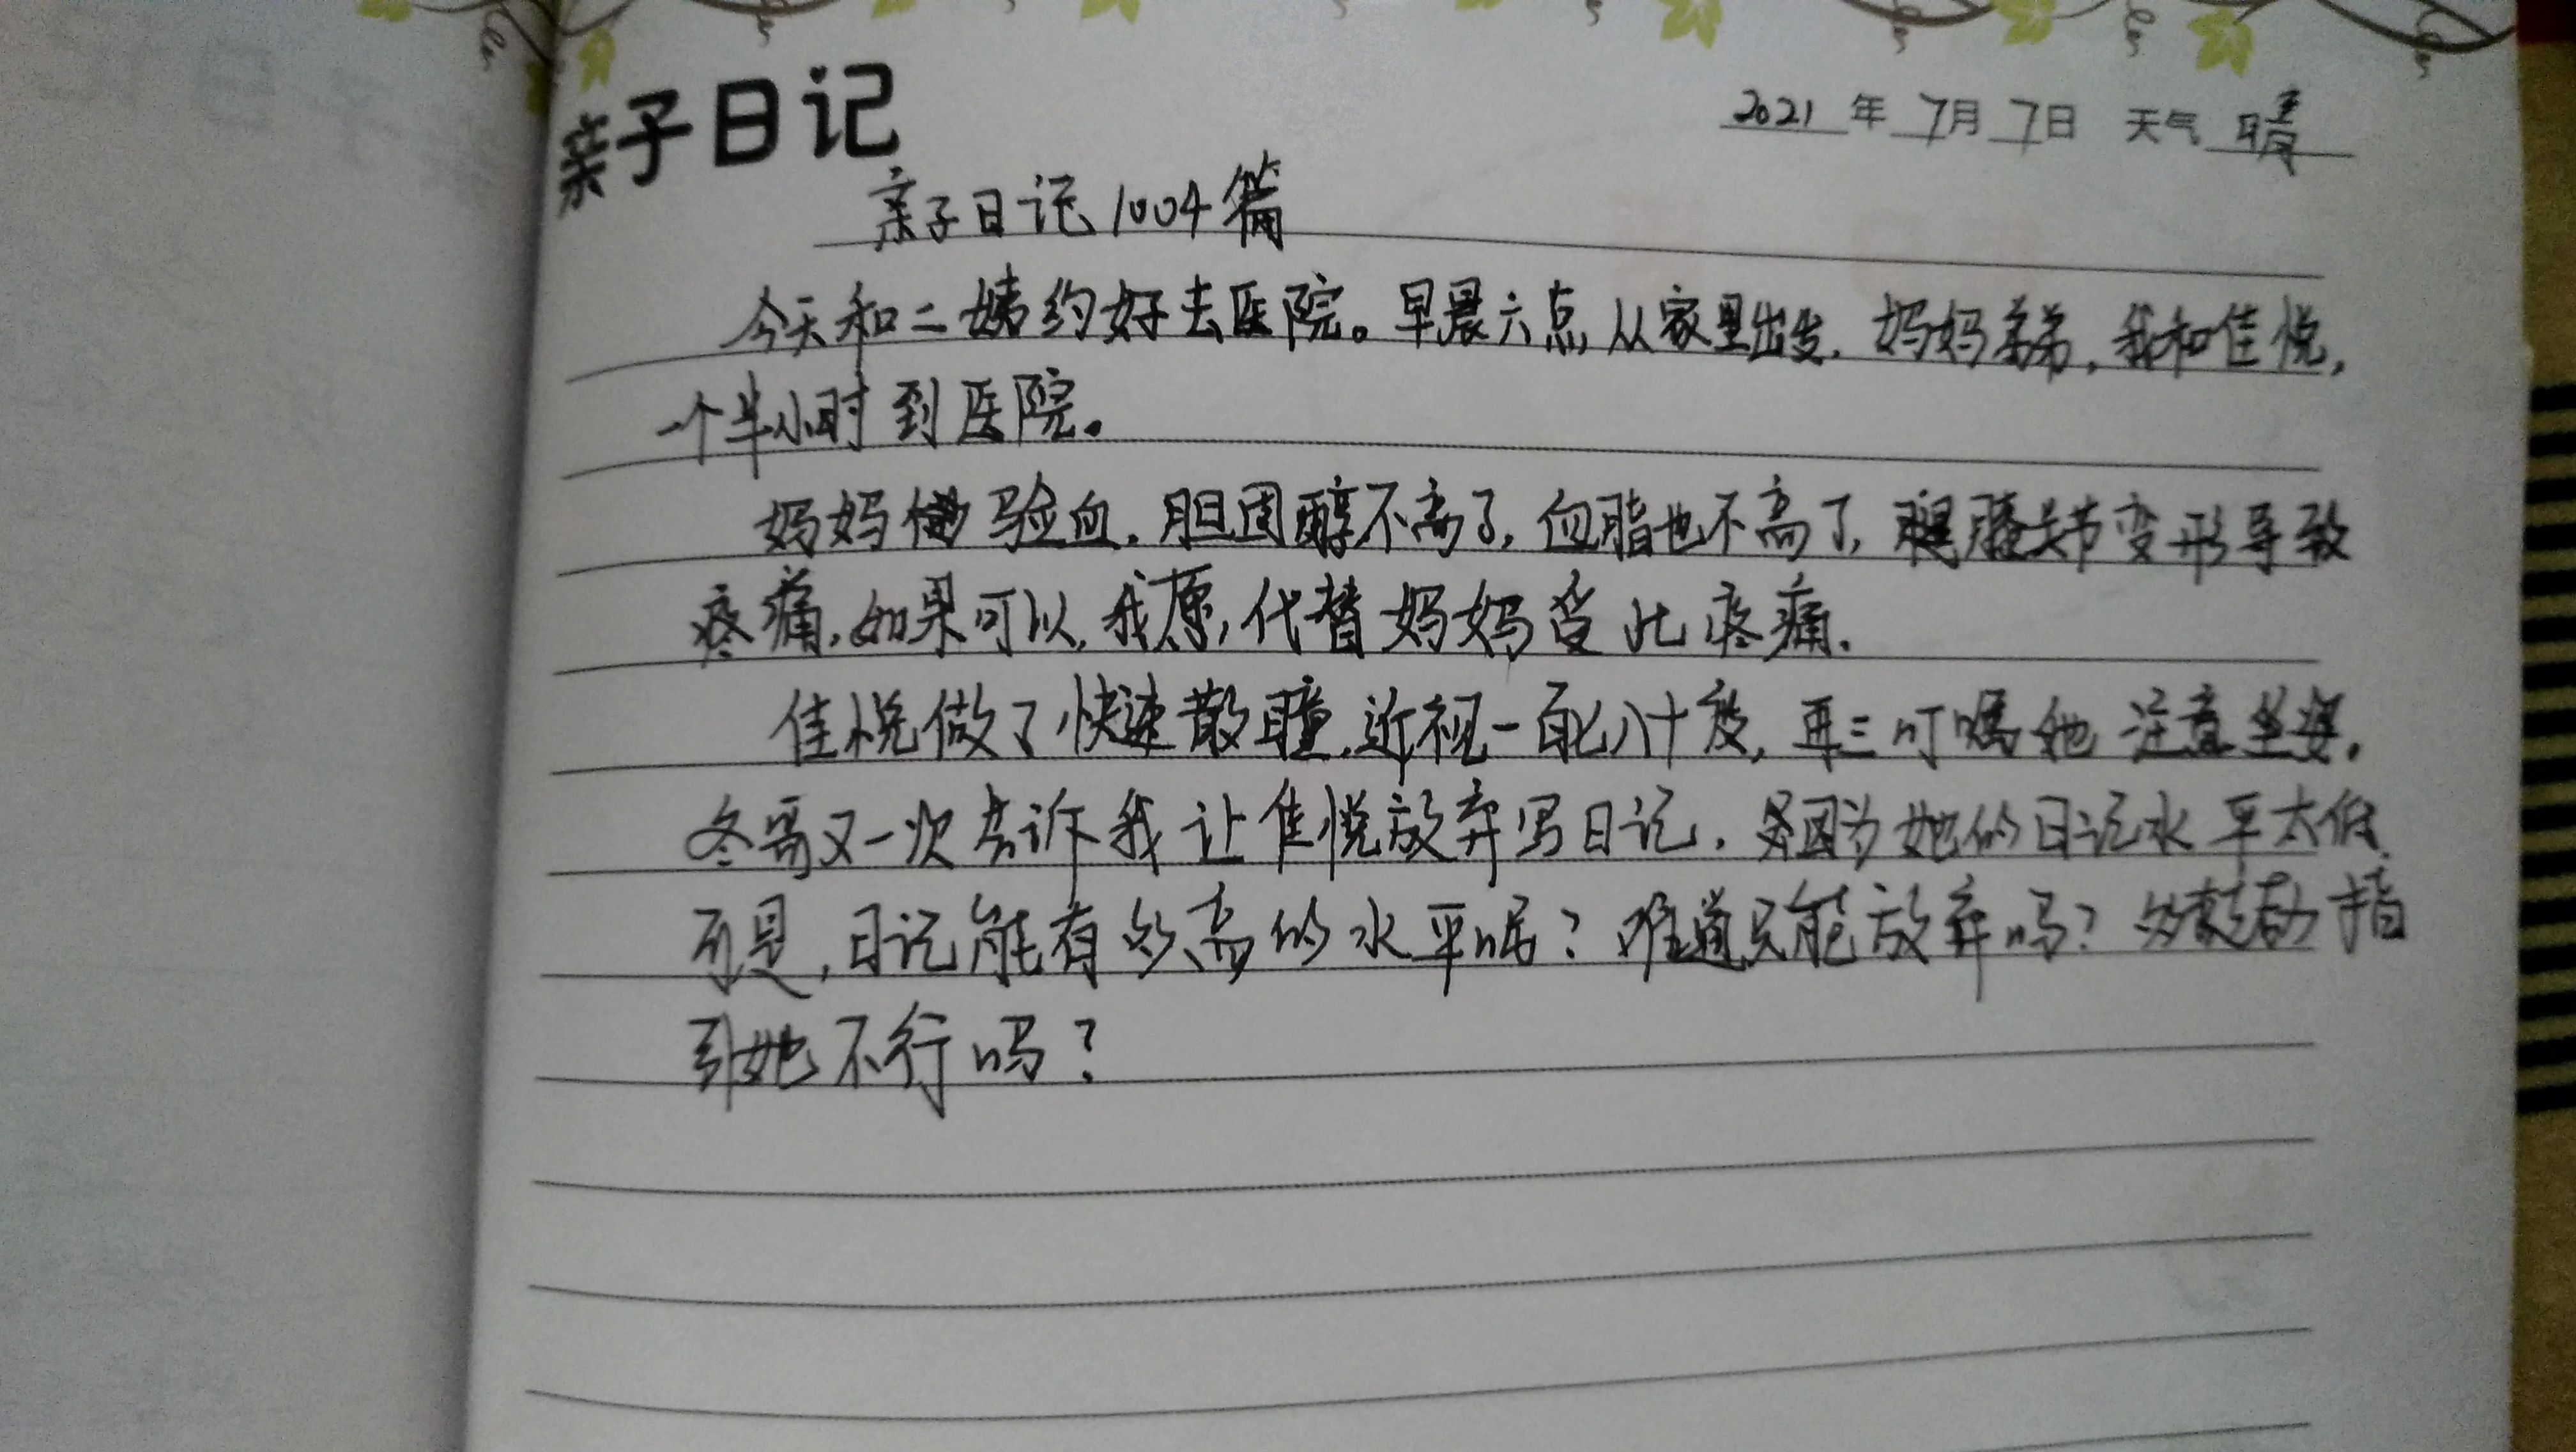 亲子日记
2021年7月7日 天气 晴
亲子日记1004篇
今天和二姨约好去医院。早晨六点从家里出发,妈妈弟弟,我和佳悦,
一个半小时到医院。
妈妈做验血,胆固醇不高了,血脂也不高了,腿膝关节变形导致
疼痛,如果可以,我愿,代替妈妈受此疼痛.
佳悦做了快速散瞳,近视一百八十度,再三叮嘱她注意坐姿。
冬哥又一次告诉我让佳悦放弃写日记,因为她的日记水平太低
可是,日记能有多高的水平呢?难道只能放弃吗?多鼓励指
引她不行吗?